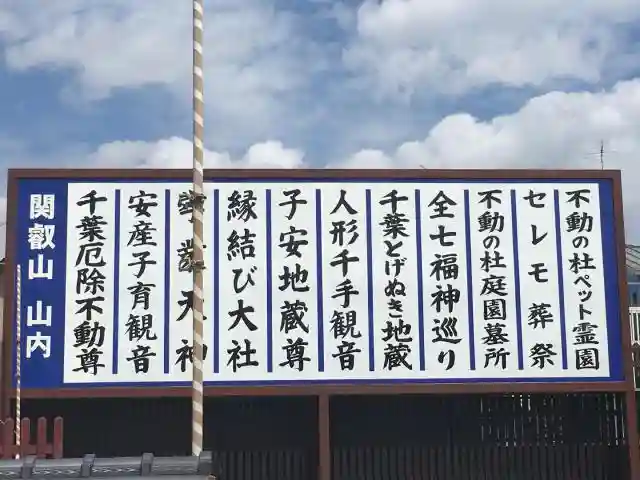 不動の杜ペット霊園
セレモ葬祭
不動の杜庭園墓所
全七福神巡り
千葉とげぬき地蔵
人形千手観音
子安地蔵尊
縁結び大社
天神
安産子育観音
千葉厄除不動尊
関叡山 山内